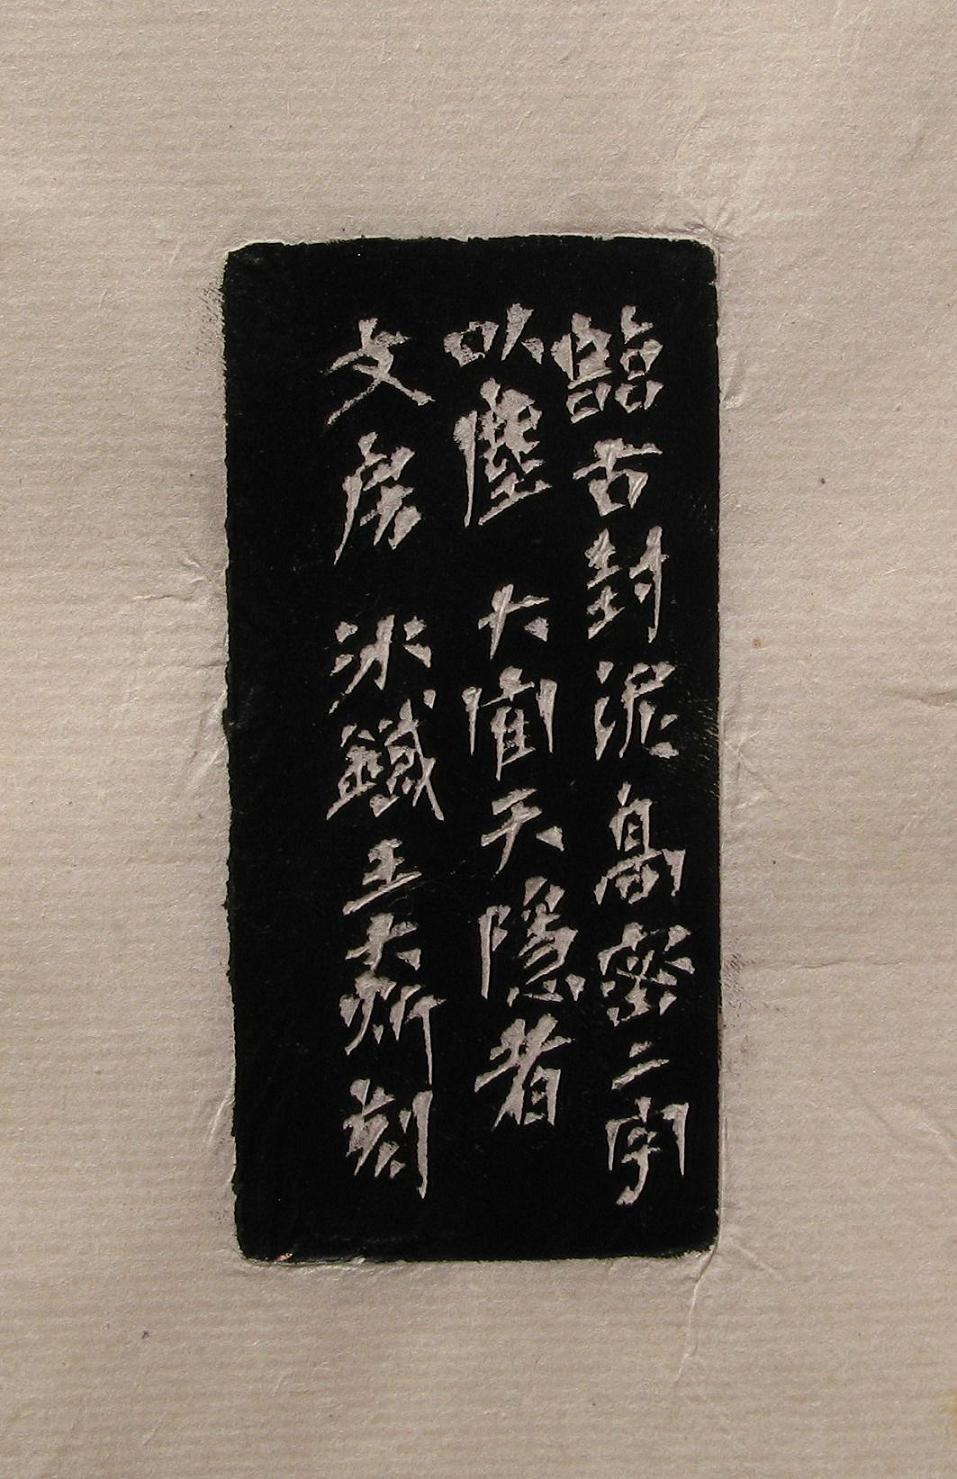 臨古封泥高密二字
以塵 大𪧶天隱者
文房 冰鐵王大炘刻